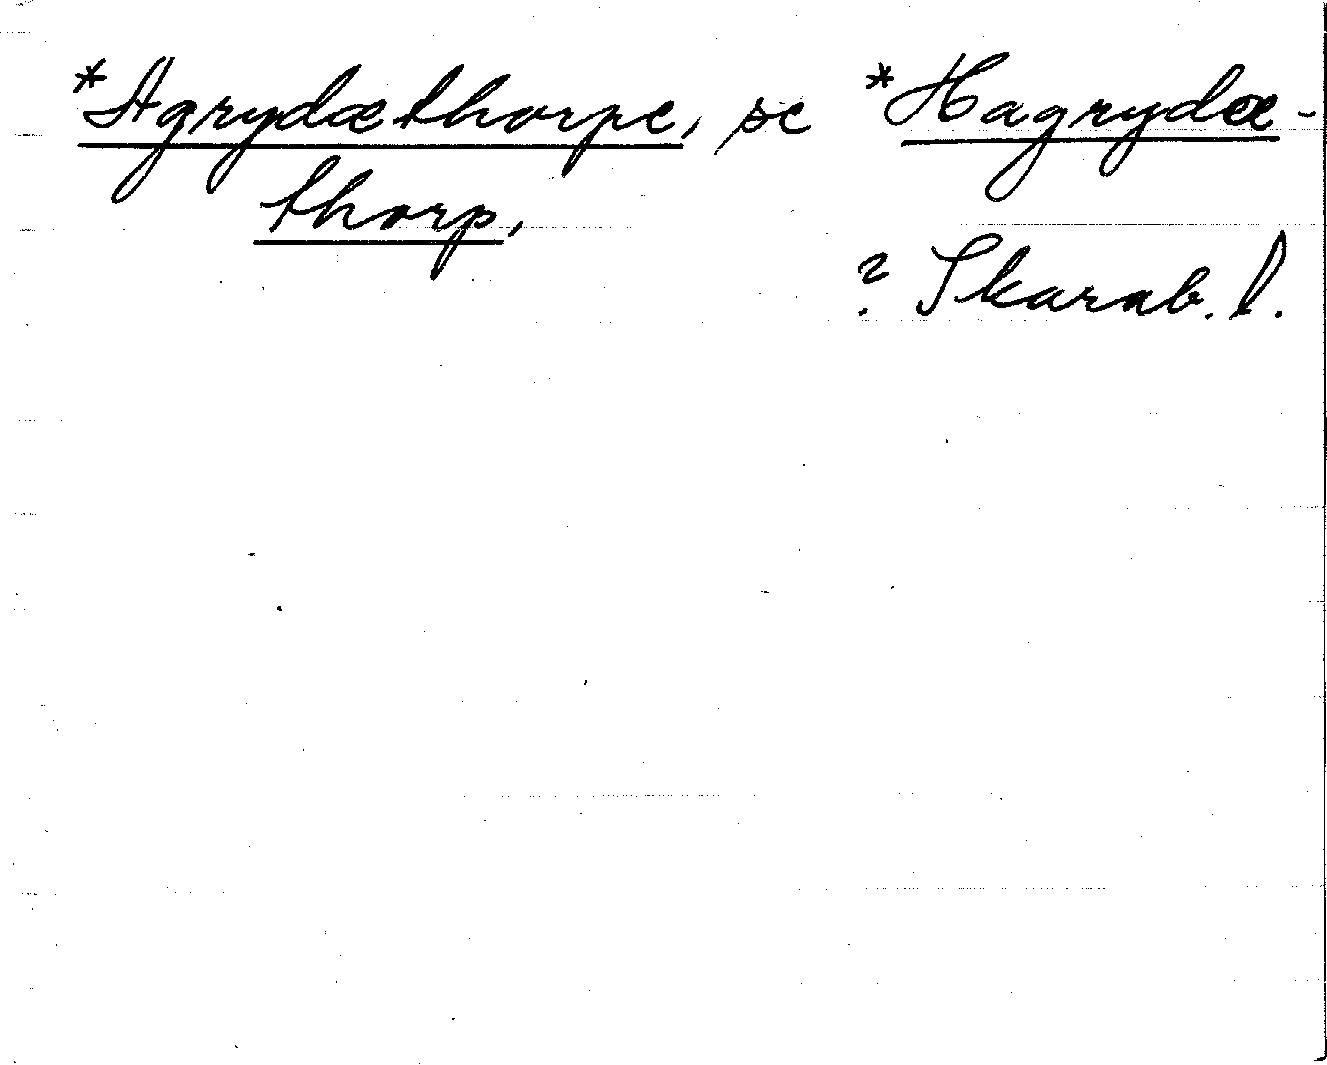 *Agrydæthorpe, se *Hagrydæ-
thorp,
? Skarab. l.